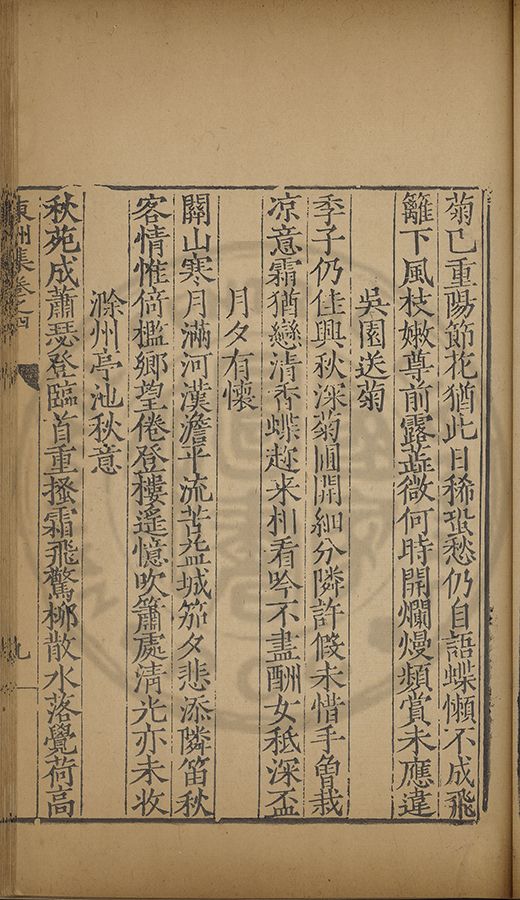 菊已重陽節花猶此日稀蛩愁仍自語蝶懶不成飛
籬下風枝嫩尊前露蕋微何時開爛熳頻賞未應違
吳園送菊
季子仍佳興秋深菊圃開細分隣許假未惜手曾栽
凉意霜猶戀清香蝶趂来相看吟不盡酬女秪深盃
月夕有懷
關山寒月滿河漢澹平流苦益城笳夕悲添隣笛秋
客情惟倚檻鄉望倦登樓遥憶吹簫處清光亦未收
滁州亭池秋意
秋苑成蕭瑟登臨首重搔霜飛驚栁散水落覺荷高
東洲集卷之四
九